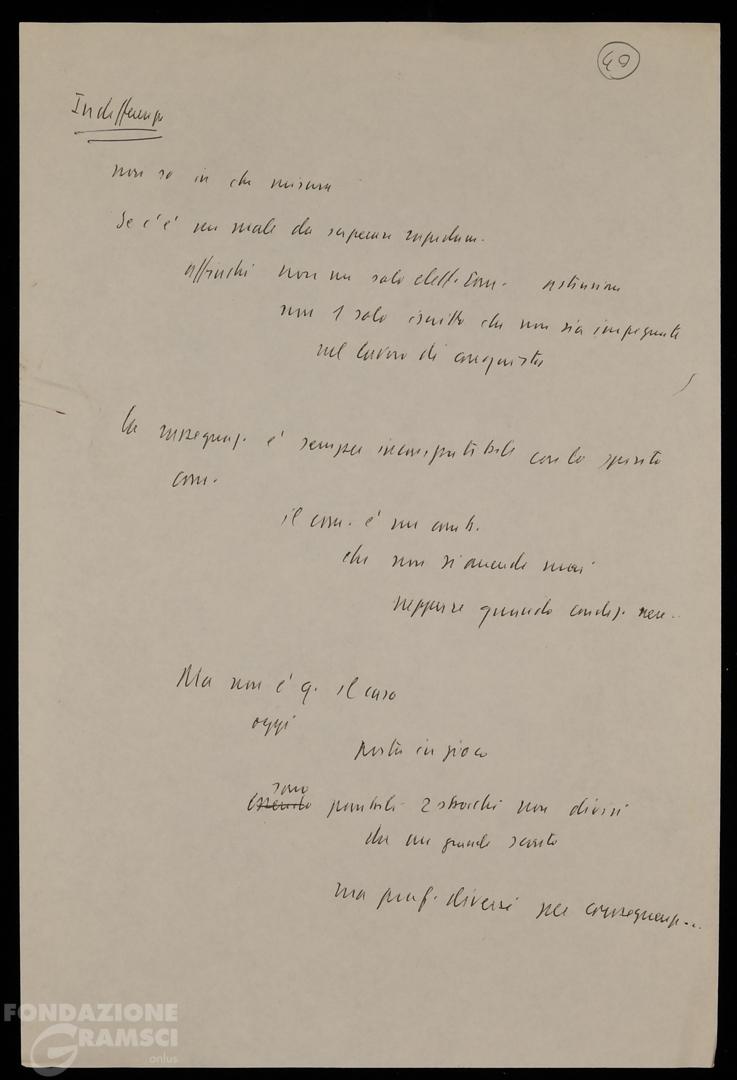 40
Indifferenza
non so in che misura
Se c'è è un male da superare rapidam.
affinchè non un solo elett. com. astensione
non 1 solo iscritto che non sia impegnato
nel lavoro di conquista
la rassegnaz. è sempre incompatibile con lo spirito
com.
il com. è un comb.
che non si arrende mai
neppure quando
Ma non è q. il caso
oggi
posta in gioco
sono
possibili 2 sbocchi non divisi
da un grande scarto
ma prof. diversi per conseguenz...
FONDAZIONE
GRAMSCI
onlus